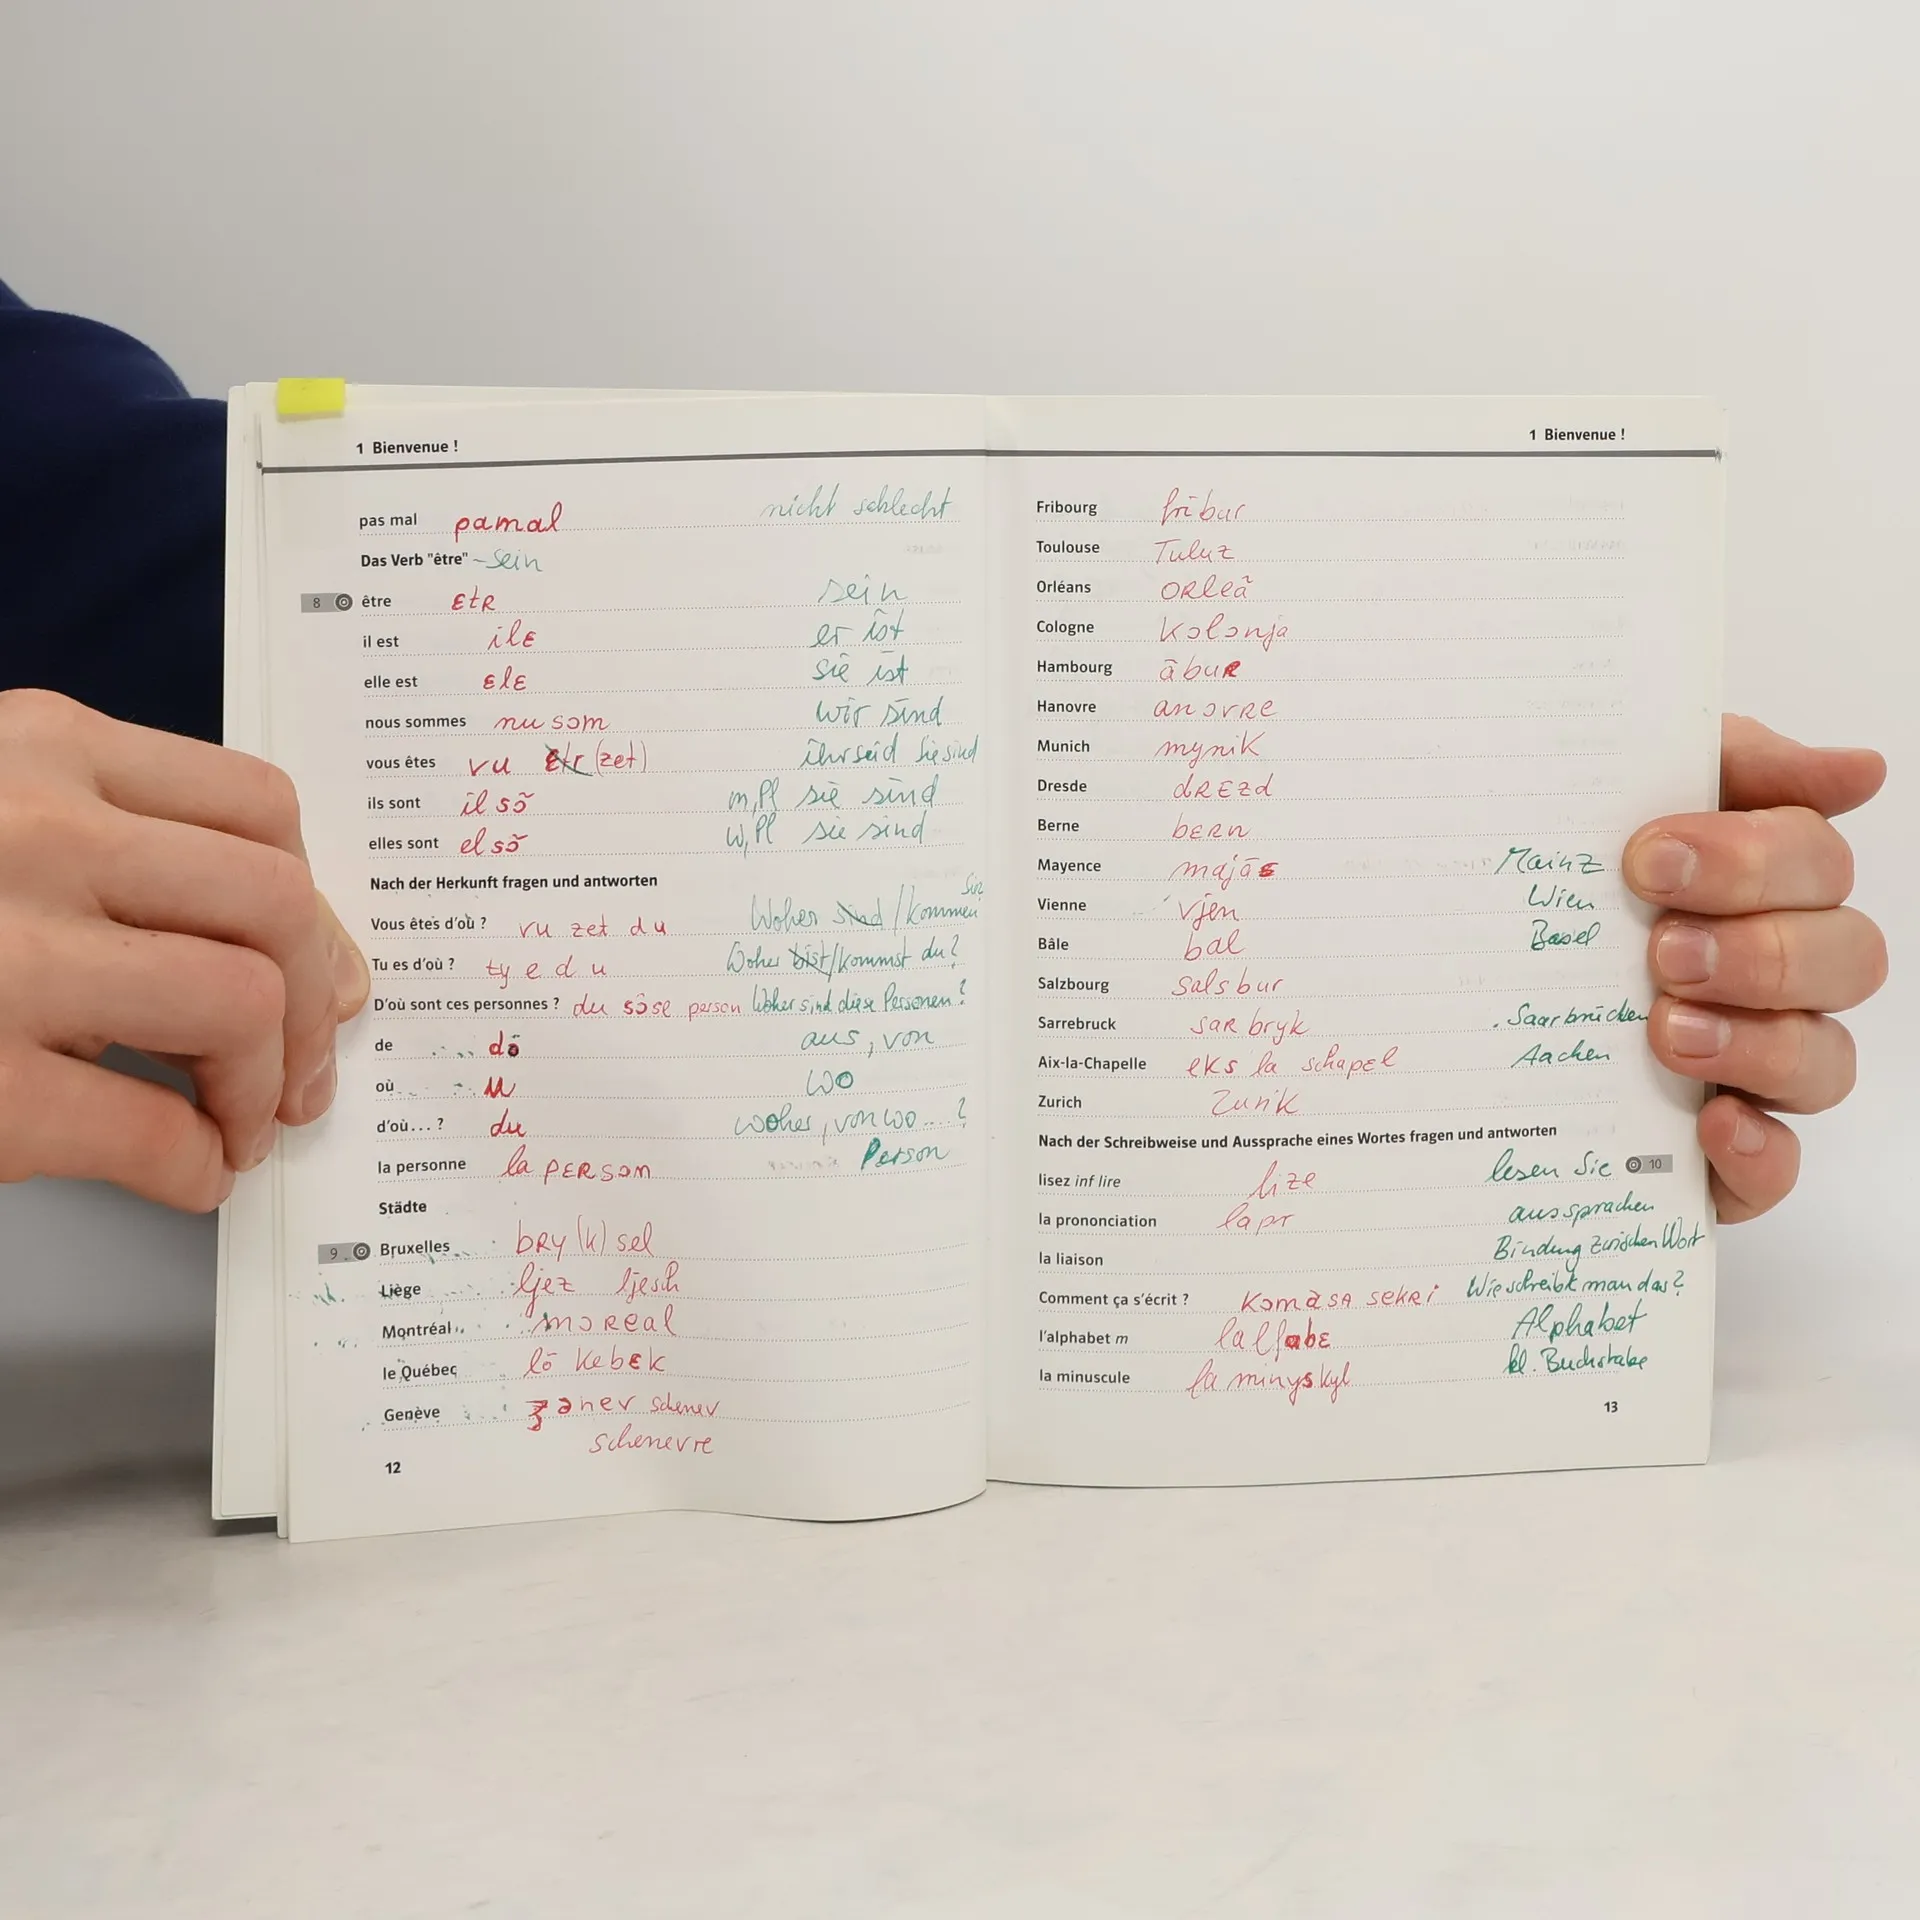 1 Bienvenue !
pas mal pamal nicht schlecht
Das Verb "être" - sein
8 être ɛtR sein
il est ilɛ er ist
elle est ɛlɛ sie ist
nous sommes nu sɔm wir sind
vous êtes vu ɛtr (zet) ihr seid Sie sind
ils sont il sɔ̃ m, Pl sie sind
elles sont el sɔ̃ w, Pl sie sind
Nach der Herkunft fragen und antworten
Vous êtes d'où ? vu zet du Woher sind / kommen Sie
Tu es d'où ? ty e d u Woher bist/kommst du?
D'où sont ces personnes ? du sɔ̃se person Woher sind diese Personen?
de dö aus, von
où u wo
d'où... ? du woher, von wo ....?
la personne la pɛRsɔn Person
Städte
9 Bruxelles bRy (k) sel
Liège ljez ljesch
Montréal mɔReal
le Québec lö kebɛk
Genève ʒənev schenev
schenevre
12
1 Bienvenue !
Fribourg fribur
Toulouse Tuluz
Orléans ORleã
Cologne kɔlɔnja
Hambourg ãbuR
Hanovre anɔvRe
Munich mynik
Dresde dRɛzd
Berne bɛRn
Mayence majãs Mainz
Vienne vjen Wien
Bâle bal Basel
Salzbourg salsbur
Sarrebruck saR bryk Saarbrücken
Aix-la-Chapelle eks la schapɛl Aachen
Zurich Zurik
Nach der Schreibweise und Aussprache eines Wortes fragen und antworten
lisez inf lire lize lesen Sie 10
la prononciation la pr aussprachen
la liaison Bindung zwischen Wort
Comment ça s'écrit ? kɔmãsa sekRi Wie schreibt man das?
l'alphabet m lalfabɛ Alphabet
la minuscule la minyskyl kl. Buchstabe
13